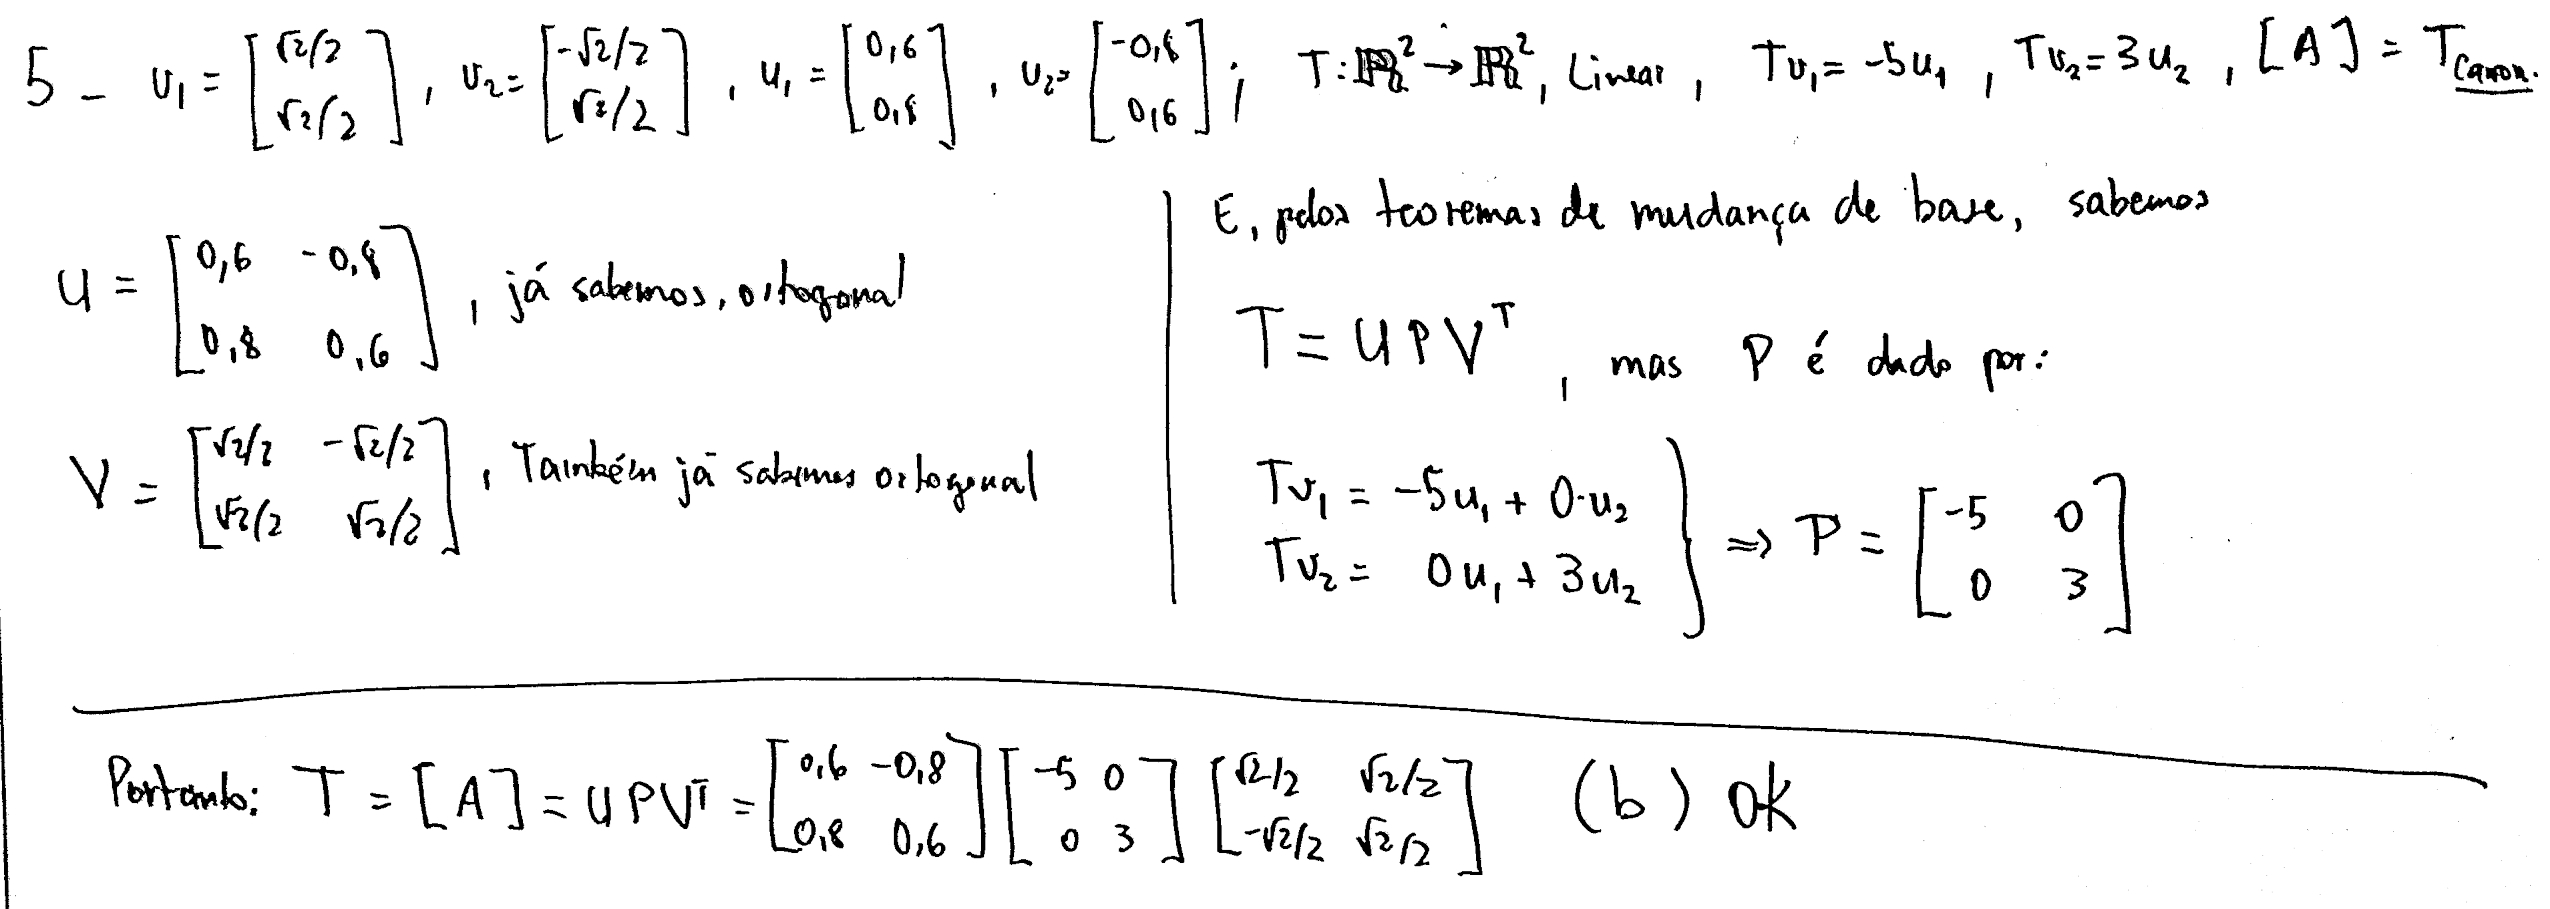 5 - v₁ = [√2/2 ; √2/2], v₂ = [-√2/2 ; √2/2], u₁ = [0,6 ; 0,8], u₂ = [-0,8 ; 0,6]; T: ℝ² → ℝ², Linear, Tv₁ = -5u₁, Tv₂ = 3u₂, [A] = T_Canon.
U = [0,6 -0,8 ; 0,8 0,6], já sabemos, ortogonal
V = [√2/2 -√2/2 ; √2/2 √2/2], Também já sabemos ortogonal
E, pelos teoremas de mudança de base, sabemos
T = U P Vᵀ, mas P é dado por:
Tv₁ = -5u₁ + 0·u₂
Tv₂ = 0u₁ + 3u₂
} ⇒ P = [-5 0 ; 0 3]
Portanto: T = [A] = U P Vᵀ = [0,6 -0,8 ; 0,8 0,6] [-5 0 ; 0 3] [√2/2 √2/2 ; -√2/2 √2/2] (b) ok